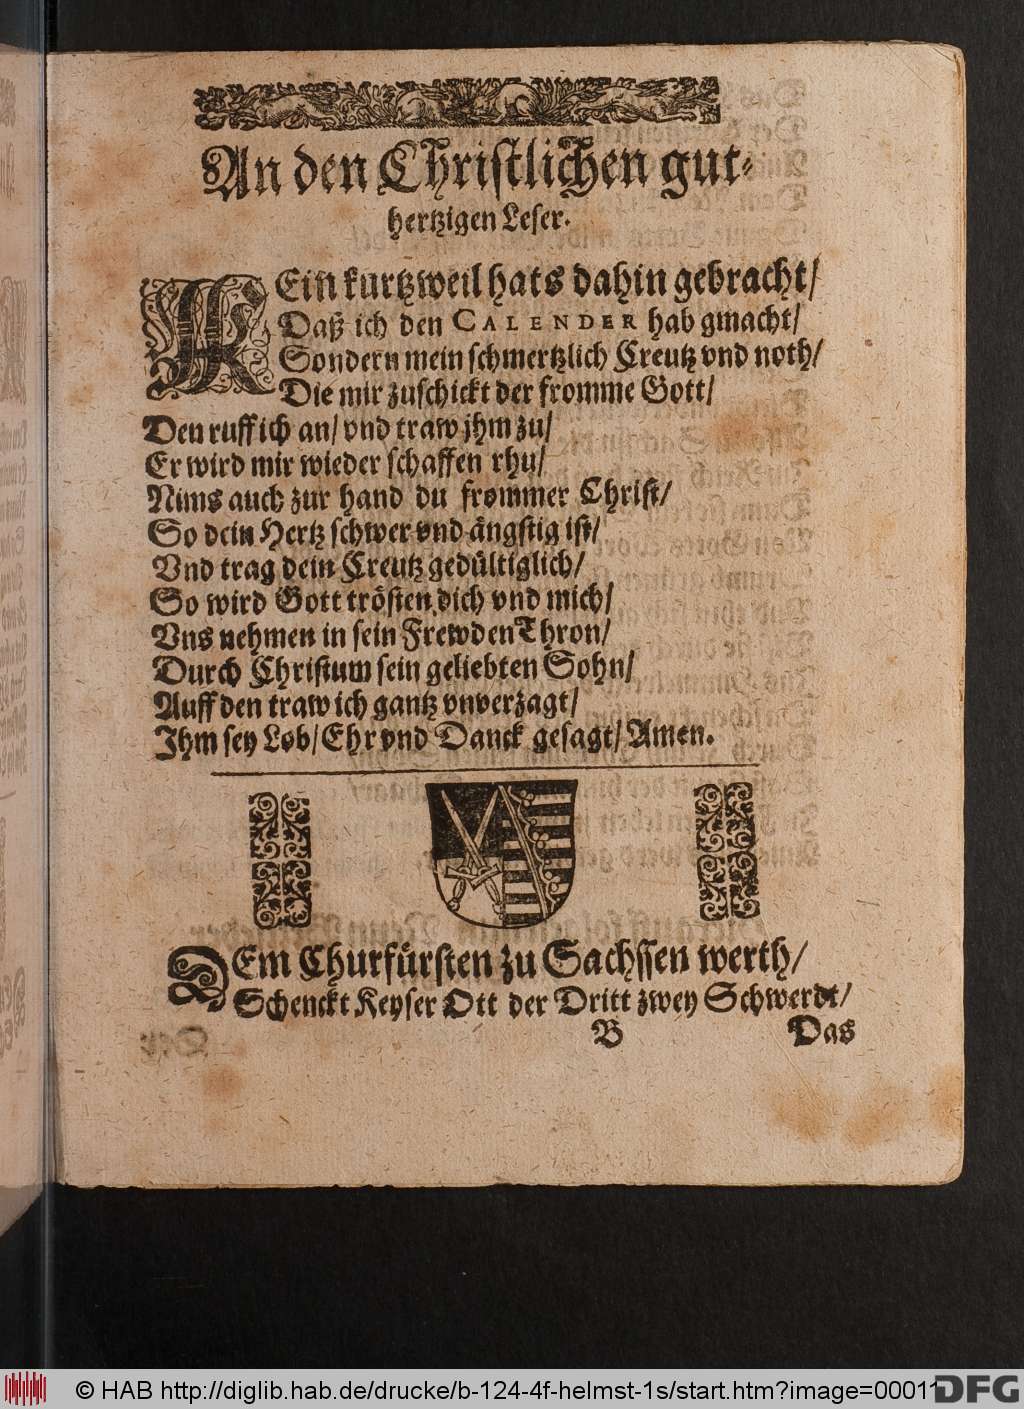 An den Christlichen gut-
hertzigen Leser.
KEin kurtzweil hats dahin gebracht/
Daß ich den CALENDER hab gmacht/
Sondern mein schmertzlich Creutz vnd noth/
Die mir zuschickt der fromme Gott/
Den ruff ich an/ vnd traw jhm zu/
Er wird mir wieder schaffen rhu/
Nims auch zur hand du frommer Christ/
So dein Hertz schwer vnd ängstig ist/
Vnd trag dein Creutz gedültiglich/
So wird Gott trösten dich vnd mich/
Vns nehmen in sein Frewden Thron/
Durch Christum sein geliebten Sohn/
Auff den traw ich gantz vnverzagt/
Ihm sey Lob/ Ehr vnd Danck gesagt/ Amen.
DEm Churfürsten zu Sachssen werth/
Schenckt Keyser Ott der Dritt zwey Schwerdt/
B Das
© HAB http://diglib.hab.de/drucke/b-124-4f-helmst-1s/start.htm?image=00011
DFG